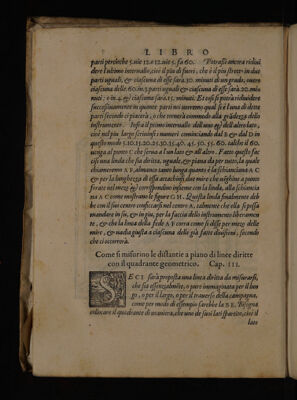 LIBRO
parti perche 5. uie 12. e 12. uie 5. fa 60. Potrassi ancora riduidere
l'ultimo internallo, cioè il piu di fuori, che è il piu stretto in due
parti uguali, & ciascuna di esse sarà 30. minuti di un grado, ouero
ciascuna delle 60. in 3. parti uguali & ciascuna di esse sarà 20. minuti
; o in 4. & ciascuna sarà 15. minuti. Et così si potrà riduidere
successiuamente in quante parti noi uorremo qual si è l'una di dette
parti secondo ci piacerà, o che tornerà commodo alla grandezza dello
instrumento. Infra il primo internallo dell'uno & dell'altro lato,
cioè nel piu largo scriuinsi i numeri cominciando dal B & dal D in
questo modo 5. 10. 15. 20. 25. 30. 35. 40. 45. 50. 55. 60. talche il 60.
uenga al punto C che serua a l'un lato & all'altro. Fatto questo faccisi
una linda che sia diritta, uguale, & piana da per tutto, la quale
chiameremo A F, almanco tanto lunga quanto è la schianciana A C
& per la lunghezza di essa attacchinsi due mire che inseieme a punto
forate nel mezo & corrispondino insieme con la linda, alla schianciana
A C come mostrano le figure G H. Questa linda finalmente debbe
con il suo centro conficcarsi nel centro A, talmente che ella si possa
mandare in su, & in giu, per la faccia dello instrumento liberamente
, & che la linea della fede A F corra come si disse per mezo delle
mire, & uadia giusta a ciascuna delle già fatte diuisioni, secondo
che ci occorrerà.
Come si misurino le distantie a piano di linee diritte
con il quadrante geometrico. Cap. III.
SECI sarà proposta una linea diritta da misurarsi,
che sia essenzabilmente, o pure immaginata per il lungo
, o per il largo, o per il trauerso della campagna,
come per modo di essempio sarebbe la B E. Bisogna
collocare il quadrante di maniera, che uno de suoi lati spartito, cioè il
lato